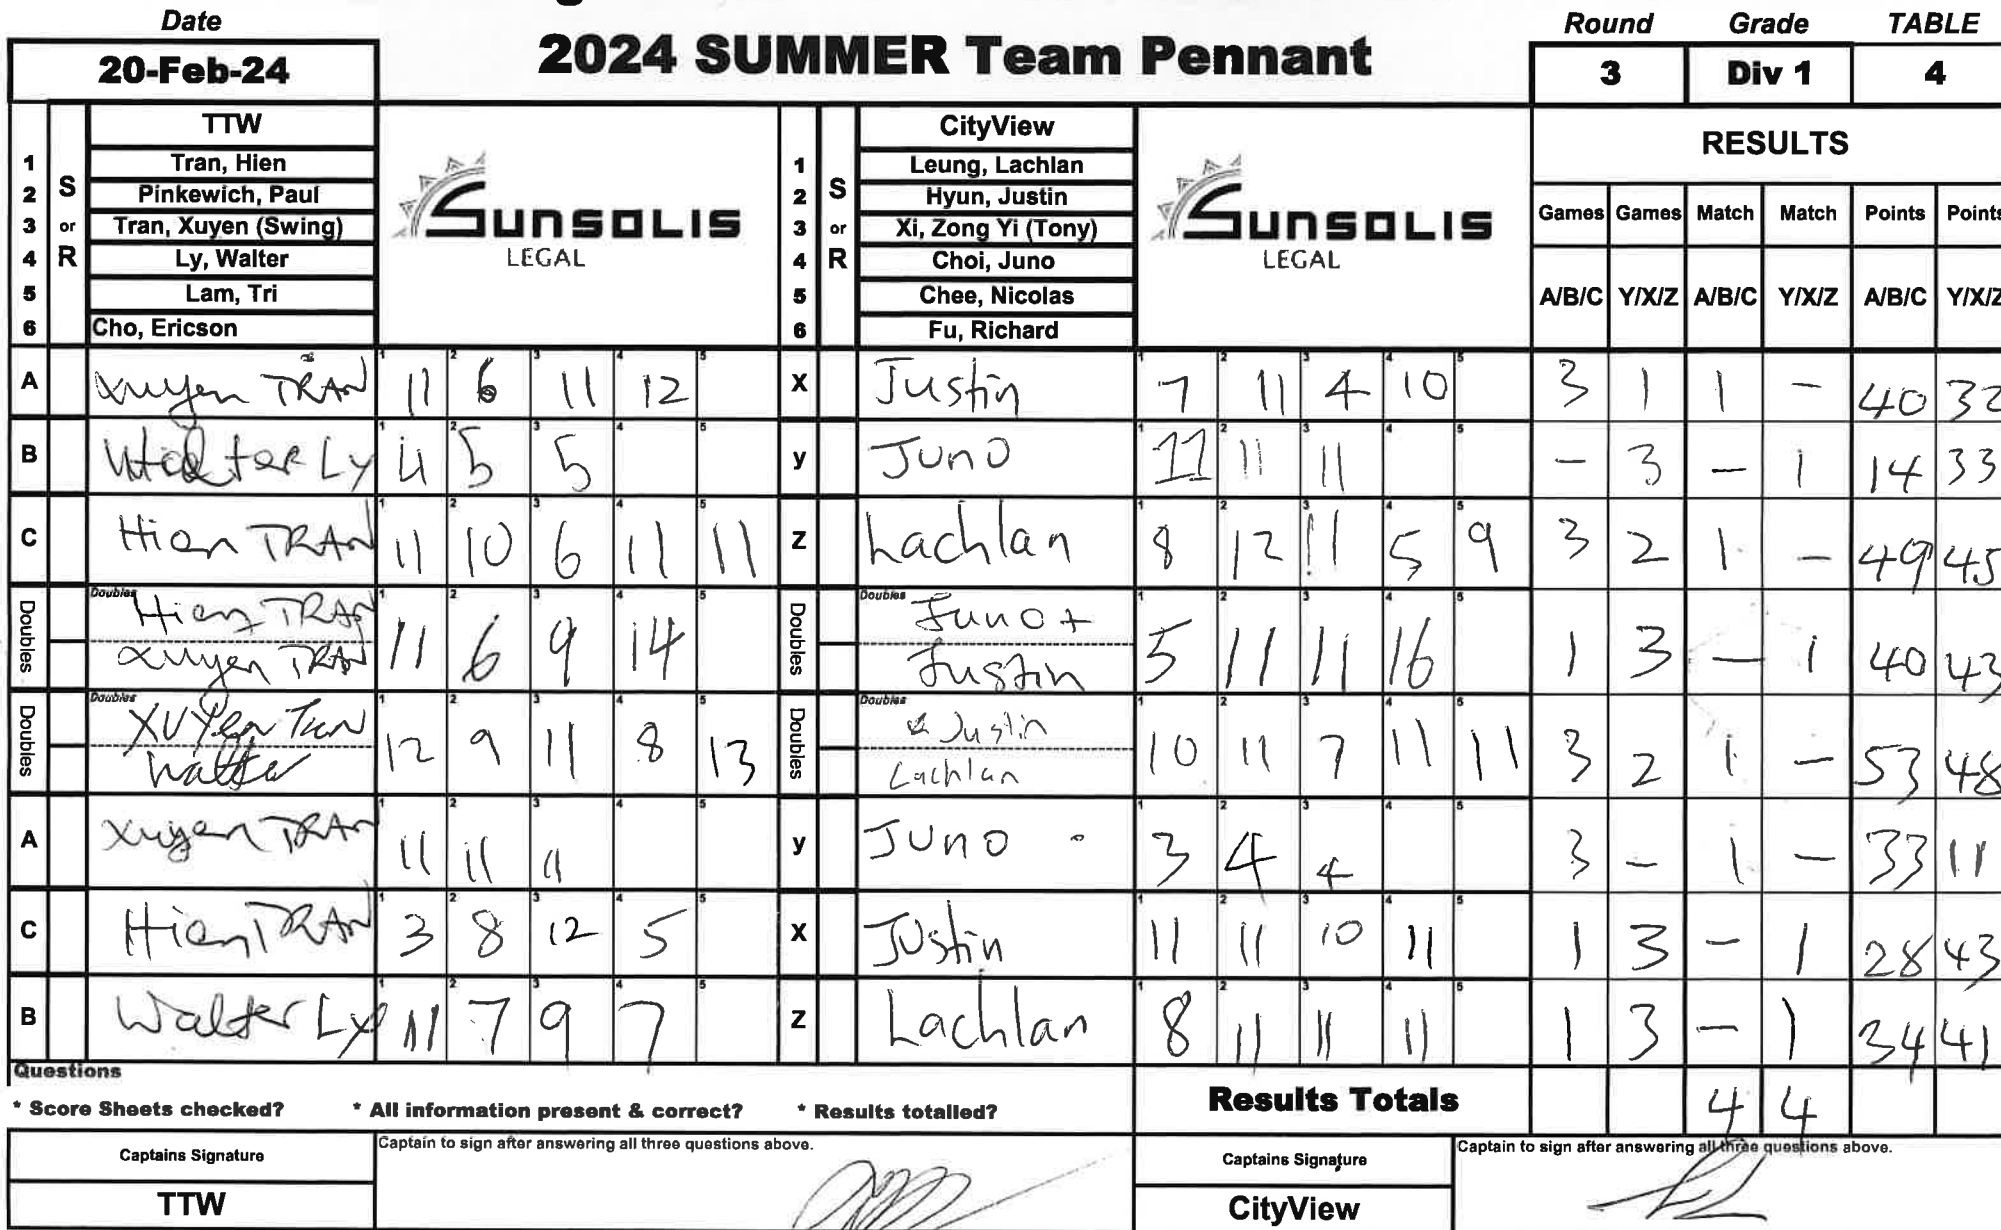 Date
20-Feb-24
2024 SUMMER Team Pennant
Round Grade TABLE
3 Div 1 4
TTW
1 Tran, Hien
2 Pinkewich, Paul
3 Tran, Xuyen (Swing)
4 Ly, Walter
5 Lam, Tri
6 Cho, Ericson
S or R
SUNSOLIS
LEGAL
CityView
1 Leung, Lachlan
2 Hyun, Justin
3 Xi, Zong Yi (Tony)
4 Choi, Juno
5 Chee, Nicolas
6 Fu, Richard
S or R
SUNSOLIS
LEGAL
RESULTS
Games Games Match Match Points Points
A/B/C Y/X/Z A/B/C Y/X/Z A/B/C Y/X/Z
A Xuyen TRAN 11 6 11 12 X Justin 7 11 4 10 3 1 1 - 40 32
B Walter Ly 4 5 5 y Juno 11 11 11 - 3 - 1 14 33
C Hien TRAN 11 10 6 11 11 Z Lachlan 8 12 11 5 9 3 2 1 - 49 45
Doubles Hien TRAN 11 6 9 14 Doubles Juno + 5 11 11 16 1 3 - 1 40 43
Xuyen TRAN Justin
Doubles XUYen Tran 12 9 11 8 13 Doubles & Justin 10 11 7 11 11 3 2 1 - 53 48
Walter Lachlan
A Xuyen TRAN 11 11 11 y JUNO 3 4 4 3 - 1 - 33 11
C Hien TRAN 3 8 12 5 X Justin 11 11 10 11 1 3 - 1 28 43
B Walter Ly 11 7 9 7 Z Lachlan 8 11 11 11 1 3 - 1 34 41
Questions
* Score Sheets checked? * All information present & correct? * Results totalled?
Results Totals 4 4
Captains Signature Captain to sign after answering all three questions above.
TTW
Captains Signature Captain to sign after answering all three questions above.
CityView